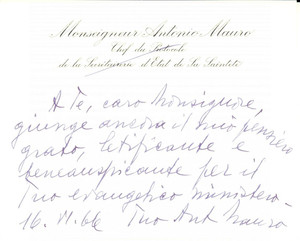 Monseigneur Antonio Mauro
Chef du Protocole
de la Secrétairerie d'Etat de Sa Sainteté
A Te, caro Monsignore,
giunge ancora il mio pensiero
grato, letificante e
beneauspicante per il
Tuo evangelico ministero.
16. VI. 66 Tuo Ant Mauro